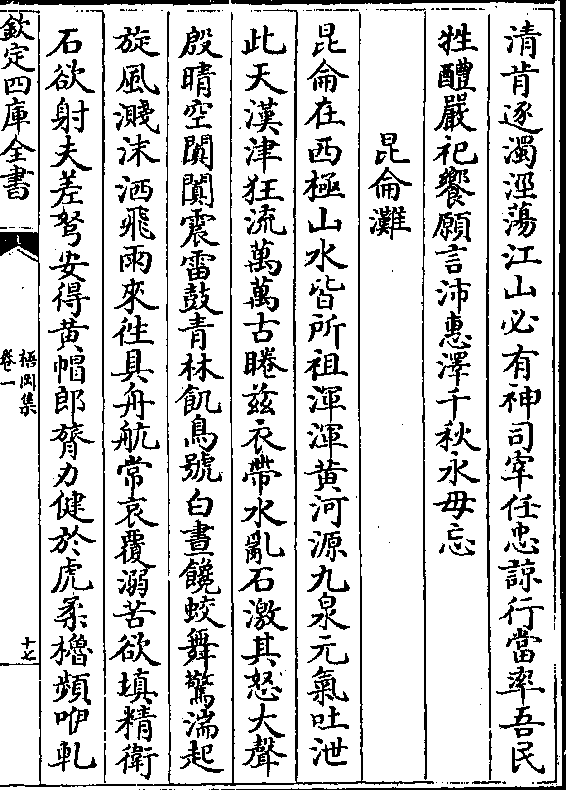 清肯逐濁涇蕩江山必有神司宰任忠諒行當率吾民
牲醴嚴祀饗願言沛惠澤千秋永毋忘
昆侖灘
昆侖在西極山水皆所祖渾渾黄河源九泉元氣吐泄
此天漢津狂流萬萬古睠兹衣帶水亂石激其怒大聲
殷晴空闐闐震雷鼓青林飢鳥號白晝饒蛟舞驚湍起
旋風濺沫洒飛雨來徃具舟航常哀覆溺苦欲填精衛
石欲射夫差弩安得黄帽郎膂力健於虎柔櫓頻咿軋
欽定四庫全書
梧岡集
卷一
十七